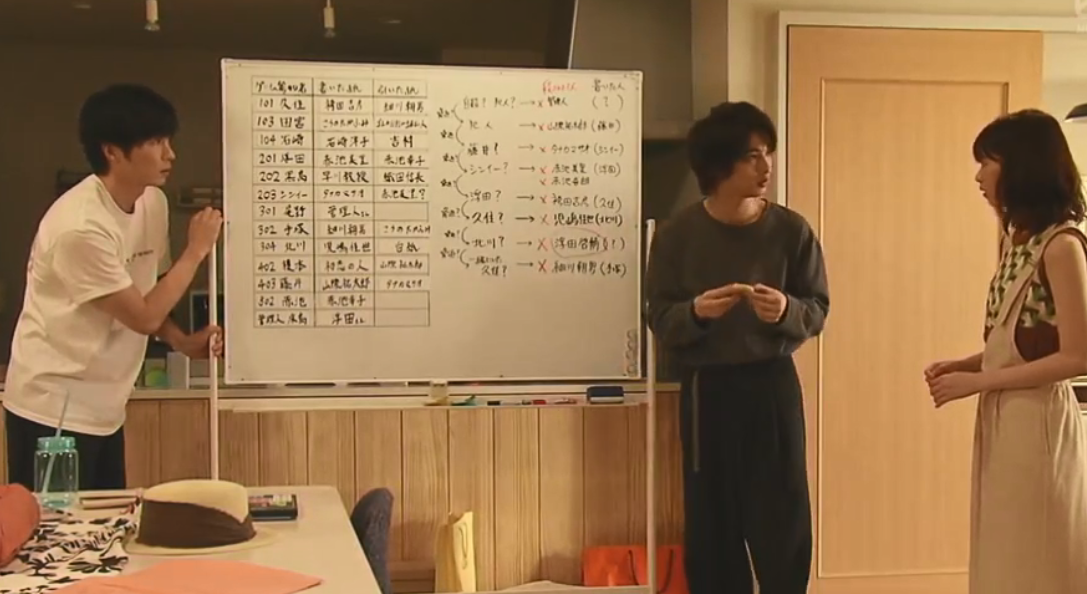 ゲーム参加者 書いた紙 引いた紙
101 久住 袴田吉彦 細川朝男
103 田宮 こうのたかふみ
104 石崎 石崎洋子 吉村
201 浮田 赤池美里 赤池幸子
202 黒島 早川教授 織田信長
203 シンイー タナカマサオ 赤池美里?
301 尾野 管理人さん
302 手塚 細川朝男 こうのたかふみ
304 北川 児嶋佳世 白紙
402 榎本 初恋の人 山際祐太郎
403 藤井 山際祐太郎 タナカマサオ
502 赤池 赤池幸子
管理人 床島 浮田さん
書いた人
自殺? 犯人? → × 管理人 (?)
犯人 → × 山際祐太郎 (藤井)
藤井? → × タナカマサオ (シンイー)
シンイー? → × 赤池美里 (浮田)
× 赤池吾朗
浮田? → × 袴田吉彦 (久住)
久住? → × 児嶋佳世 (北川)
北川? → × 浮田啓輔
久住? → × 細川朝男 (手塚)